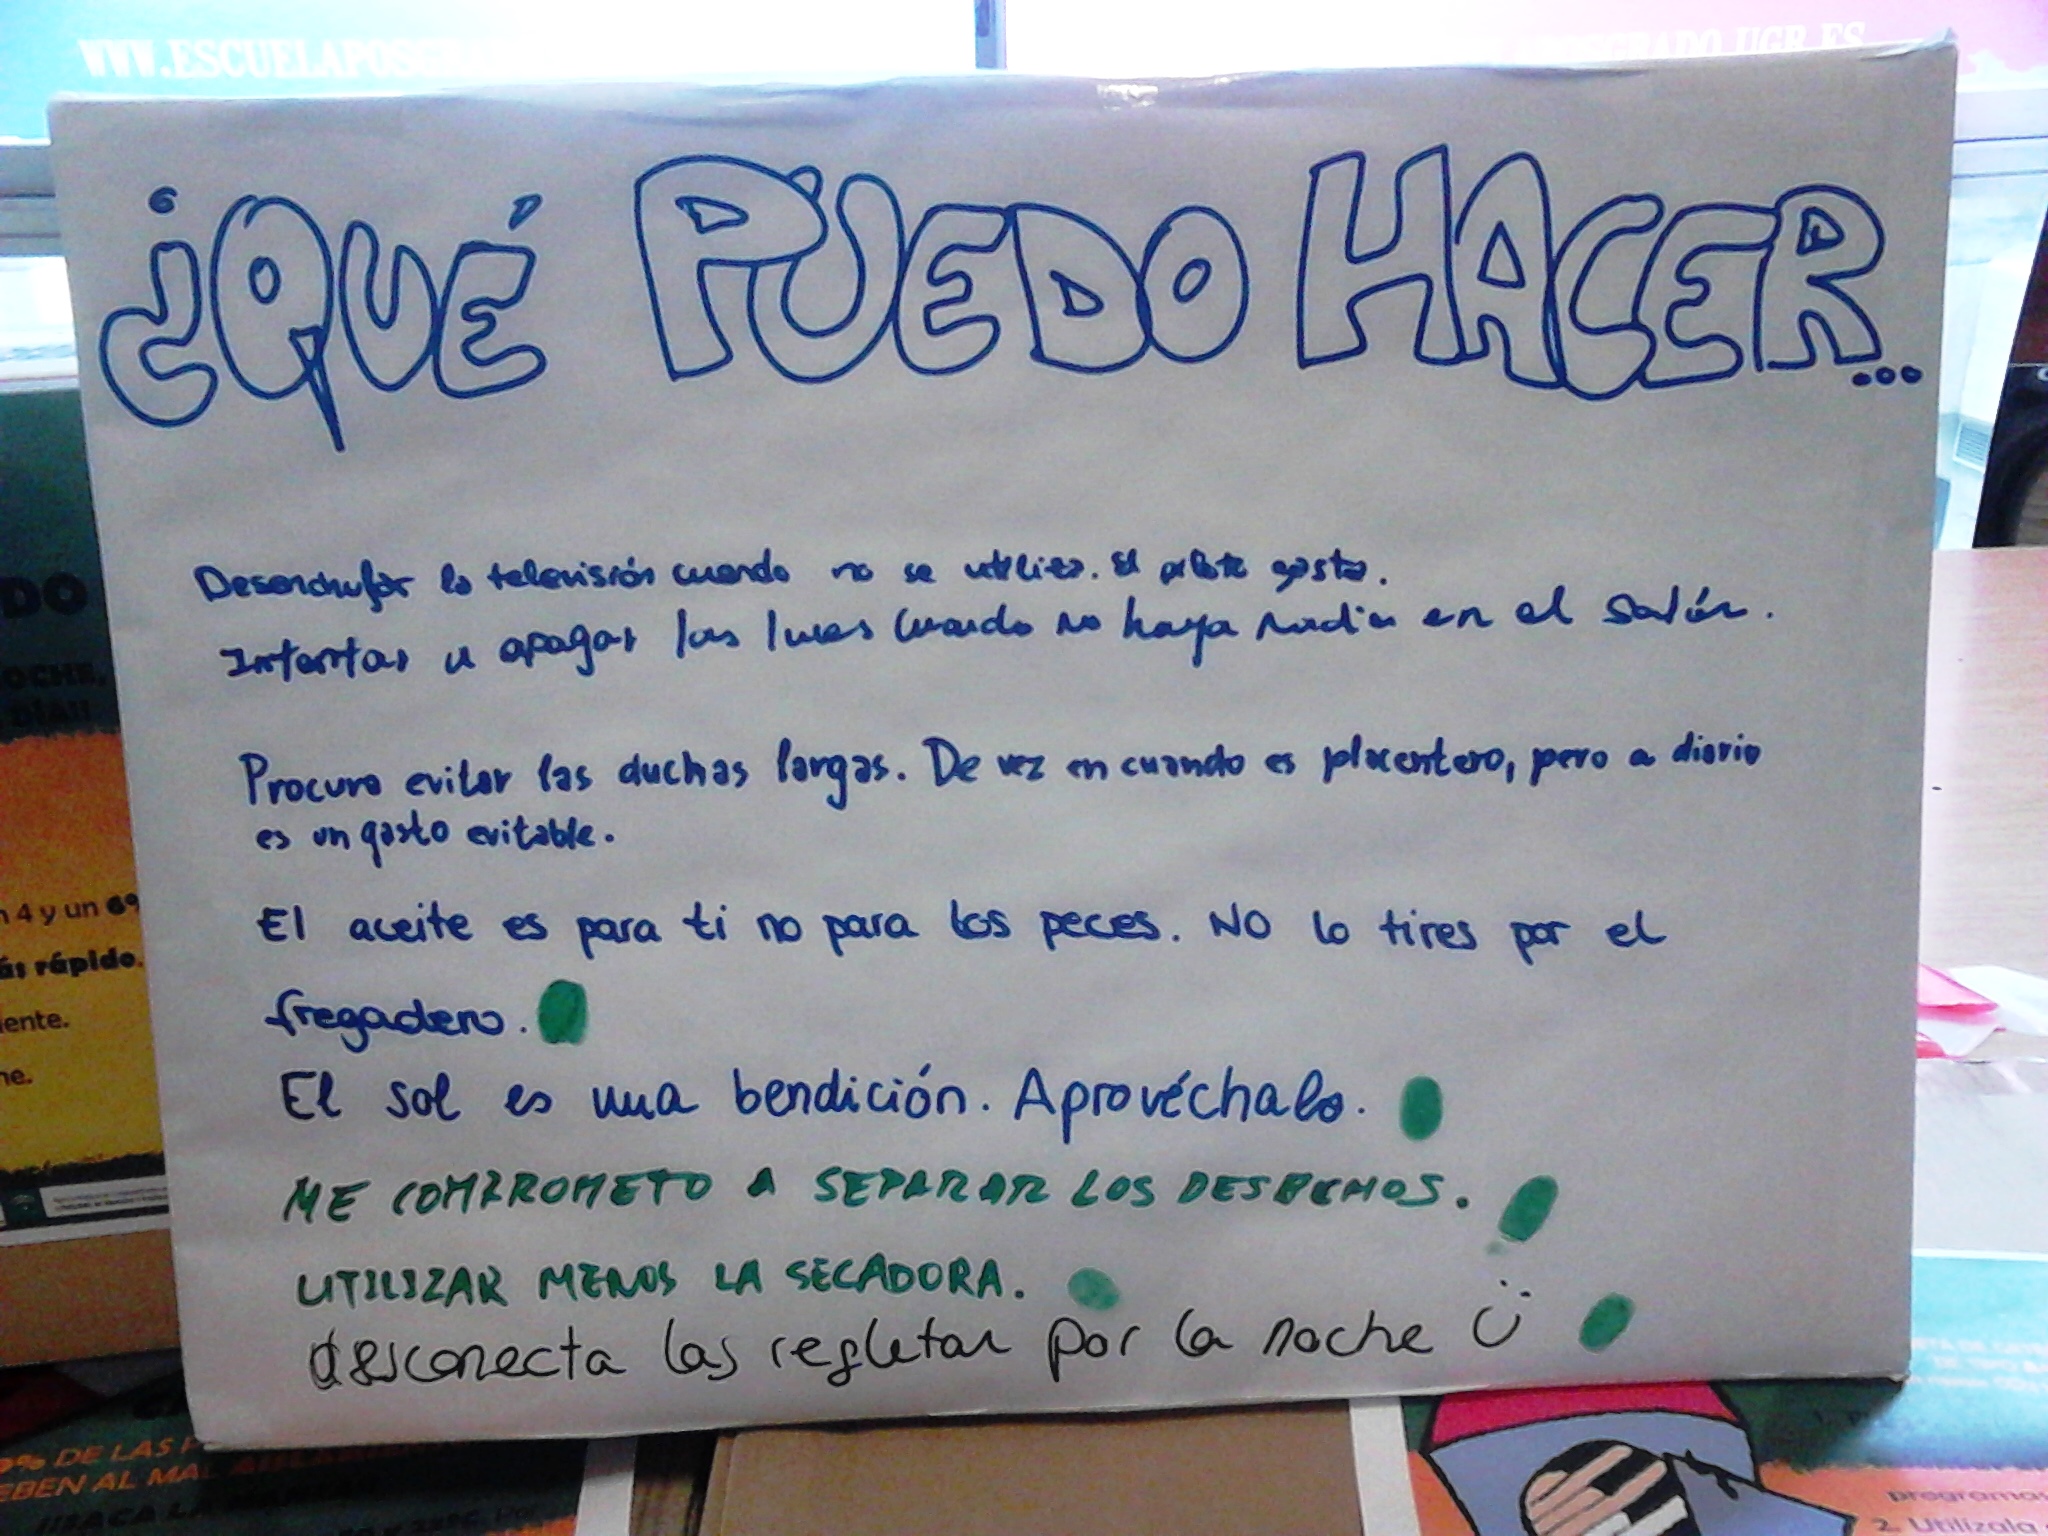 WWW.ESCUELAPOSGRA
OSGRADO.UGR.ES
¿QUÉ PUEDO HACER...
Desenchufar la televisión cuando no se utiliza. El pilote gasta.
Intentar a apagar las luces cuando no haya nadie en el salón.
Procuro evitar las duchas largas. De vez en cuando es placentero, pero a diario
es un gasto evitable.
El aceite es para ti no para los peces. NO lo tires por el
fregadero.
El sol es una bendición. Aprovéchalo.
ME COMPROMETO A SEPARAR LOS DESHECHOS.
UTILIZAR MENOS LA SECADORA.
desconecta las regletas por la noche
DO
OCHE,
DÍA!!
n 4 y un 6%
ás rápido.
iente.
ne.
% DE LAS
EBEN AL MAL
programas
2. Utilízala